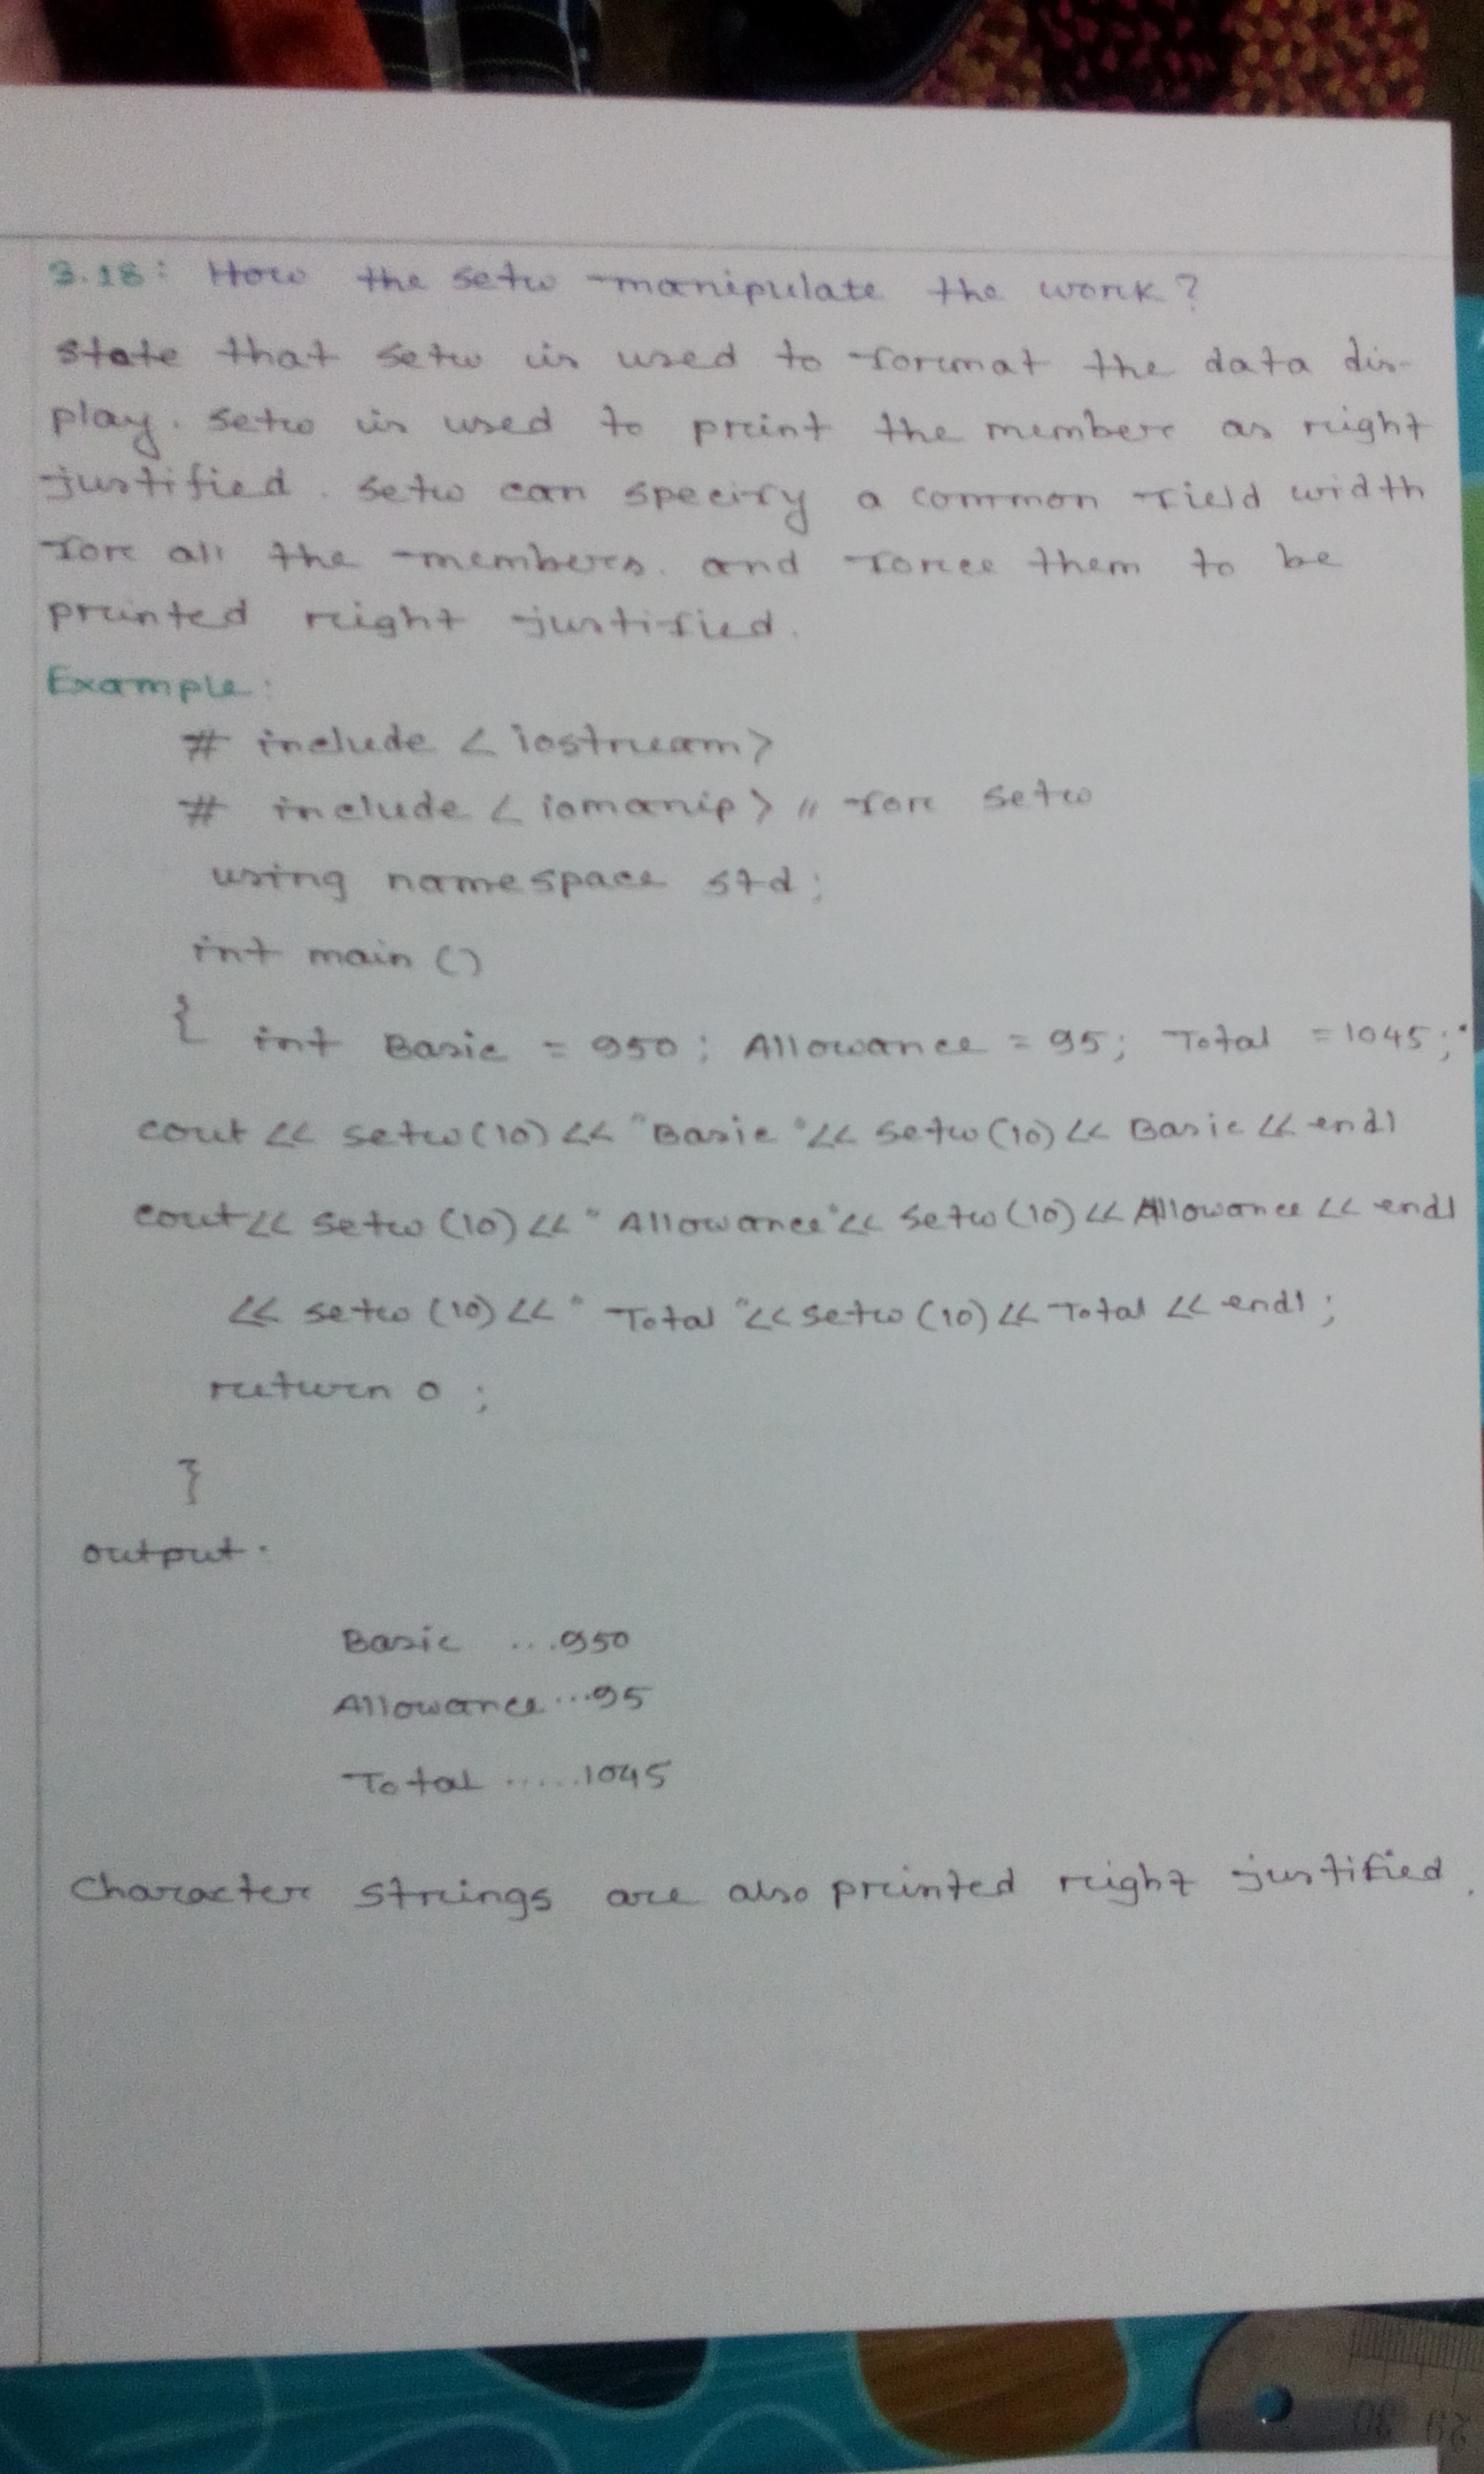 3.18: How the setw manipulate the work?
State that setw is used to format the data dis-
play. setw is used to print the member as right
justified. setw can specify a common field width
for all the members. and force them to be
printed right justified.
Example:
# include < iostream>
# include < iomanip> // for setw
using namespace std;
int main ()
{ int Basic = 950; Allowance = 95; Total = 1045;
cout << setw(10) << "Basic "<< setw(10) << Basic << endl
cout << setw(10) << " Allowance"<< setw(10) << Allowance << endl
<< setw(10) << " Total "<< setw(10) << Total << endl;
return 0 ;
}
output.
Basic ...950
Allowance ...95
Total .....1045
Character strings are also printed right justified.
29 30